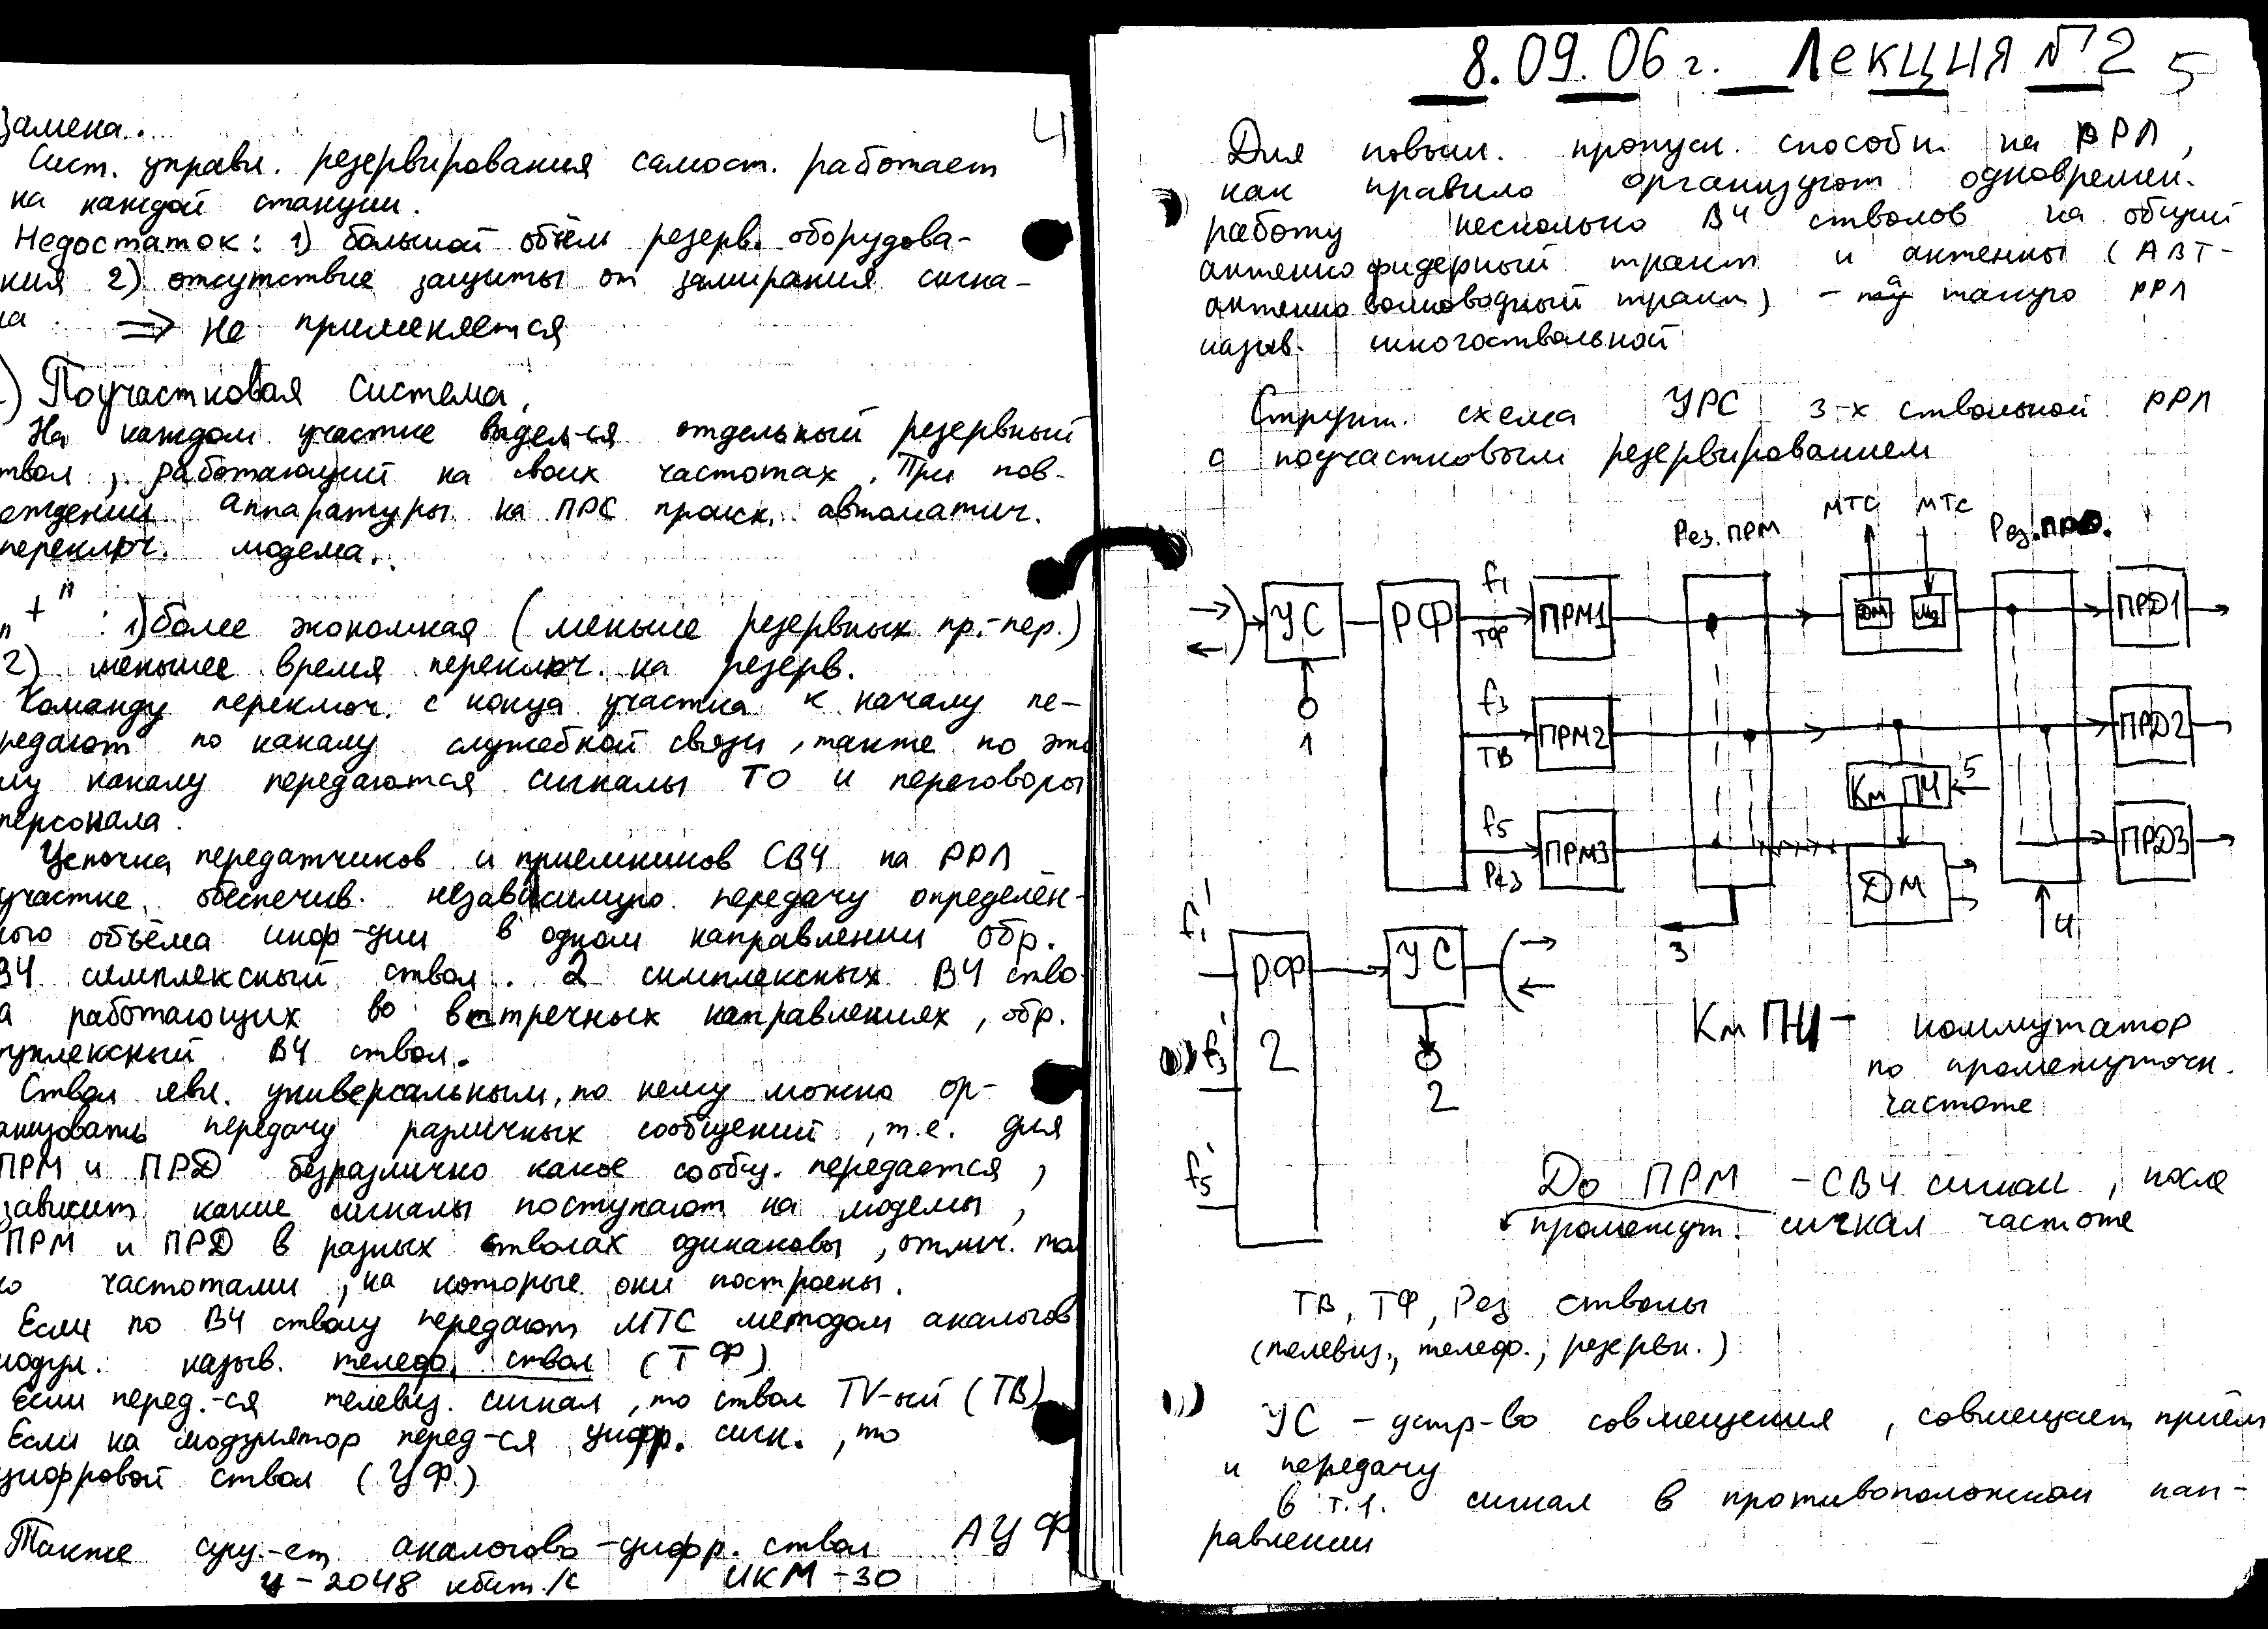 4
замена.
Сист. управл. резервирования самост. работает
на каждой станции.
Недостаток: 1) большой объём резерв. оборудова-
ния 2) отсутствие защиты от замирания сигна-
ла. => не применяется
) Поучастковая система.
На каждом участке выдел-ся отдельный резервный
твол, работающий на своих частотах. При пов-
еждении аппаратуры на ПРС происх. автоматич.
переключ. модема.
"+" : 1) более экономная (меньше резервных пр.-пер.)
2) меньшее время переключ. на резерв.
Команду переключ. с конца участка к началу пе-
редают по каналу служебной связи, также по это
му каналу передаются сигналы ТО и переговоры
персонала.
Цепочка передатчиков и приемников СВЧ на РРЛ
участке обеспечив. независимую передачу определён-
ного объёма инфор-ции в одном направлении обр.
ВЧ симплексный ствол. 2 симплексных ВЧ ство
а работающих во встречных направлениях, обр.
уплексный ВЧ ствол.
Ствол явл. универсальным, по нему можно ор-
анизовать передачу различных сообщений, т.е. для
ПРМ и ПРД безразлично какое сообщ. передается,
зависит какие сигналы поступают на модемы,
ПРМ и ПРД в разных стволах одинаковы, отлич. то
о частотами, на которые они построены.
Если по ВЧ стволу передают МТС методом аналогов
модул. назыв. телефо. ствол (ТФ)
Если перед.-ся телевиз. сигнал, то ствол TV-ый (ТВ)
Если на модулятор перед-ся цифр. сигн., то
цифровой ствол (ЦФ)
Также сущ.-ет аналогово-цифр. ствол АЦФ
ц - 2048 кбит/с ИКМ-30
8.09.06 г. Лекция №2 5
Для повыш. пропуск. способн. на РРЛ,
как правило организуют одновремен.
работу несколько ВЧ стволов на общий
антеннофидерный тракт и антенны (АВТ-
антенноволноводный тракт) - такую РРЛ
назыв. многоствольной
Структ. схема УРС 3-х ствольной РРЛ
с поучастковым резервированием
Рез. ПРМ МТС МТС Рез. ПРД.
УС РФ f1 ТФ ПРМ1 ДМ МД ПРД1
1 f3 ТВ ПРМ2 ПРД2
Км ПЧ 5
f5 Рез ПРМ3 ДМ ПРД3
3 4
f1' РФ УС
f3' 2 2
f5'
Км ПЧ - коммутатор
по промежуточн.
частоте
До ПРМ - СВЧ сигнал, после
промежут. сигнал частоте
ТВ, ТФ, Рез стволы
(телевиз., телеф., резервн.)
УС - устр-во совмещения, совмещает приём
и передачу
в т.1. сигнал в противоположном нап-
равлении